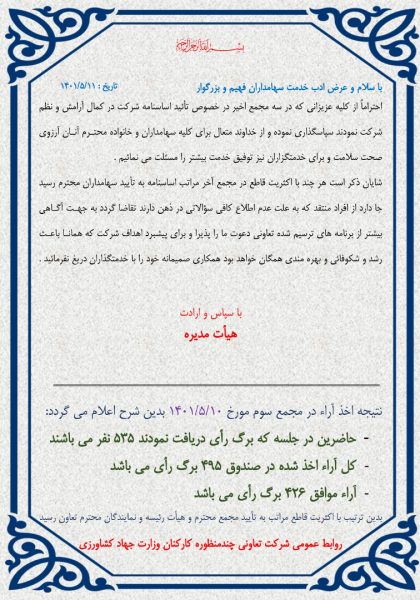 بسم الله الرحمن الرحیم
با سلام و عرض ادب خدمت سهامداران فهیم و بزرگوار تاریخ : ۱۴۰۱/۵/۱۱
احتراماً از کلیه عزیزانی که در سه مجمع اخیر در خصوص تأئید اساسنامه شرکت در کمال آرامش و نظم
شرکت نمودند سپاسگذاری نموده و از خداوند متعال برای کلیه سهامداران و خانواده محترم آنان آرزوی
صحت سلامت و برای خدمتگزاران نیز توفیق خدمت بیشتر را مسئلت می نمائیم .
شایان ذکر است هر چند با اکثریت قاطع در مجمع آخر مراتب اساسنامه به تأیید سهامداران محترم رسید
جا دارد از افراد منتقد که به علت عدم اطلاع کافی سؤالاتی در ذهن دارند تقاضا گردد به جهت آگاهی
بیشتر از برنامه های ترسیم شده تعاونی دعوت ما را پذیرا و برای پیشبرد اهداف شرکت که همانا باعث
رشد و شکوفائی و بهره مندی همگان خواهد بود همکاری صمیمانه خود را با خدمتگذاران دریغ نفرمائید .
با سپاس و ارادت
هیأت مدیره
نتیجه اخذ آراء در مجمع سوم مورخ ۱۴۰۱/۵/۱۰ بدین شرح اعلام می گردد:
- حاضرین در جلسه که برگ رأی دریافت نمودند ۵۳۵ نفر می باشند
- کل آراء اخذ شده در صندوق ۴۹۵ برگ رأی می باشد
- آراء موافق ۴۲۶ برگ رأی می باشد
بدین ترتیب با اکثریت قاطع مراتب به تأیید مجمع محترم و هیأت رئیسه و نمایندگان محترم تعاون رسید
روابط عمومی شرکت تعاونی چندمنظوره کارکنان وزارت جهاد کشاورزی